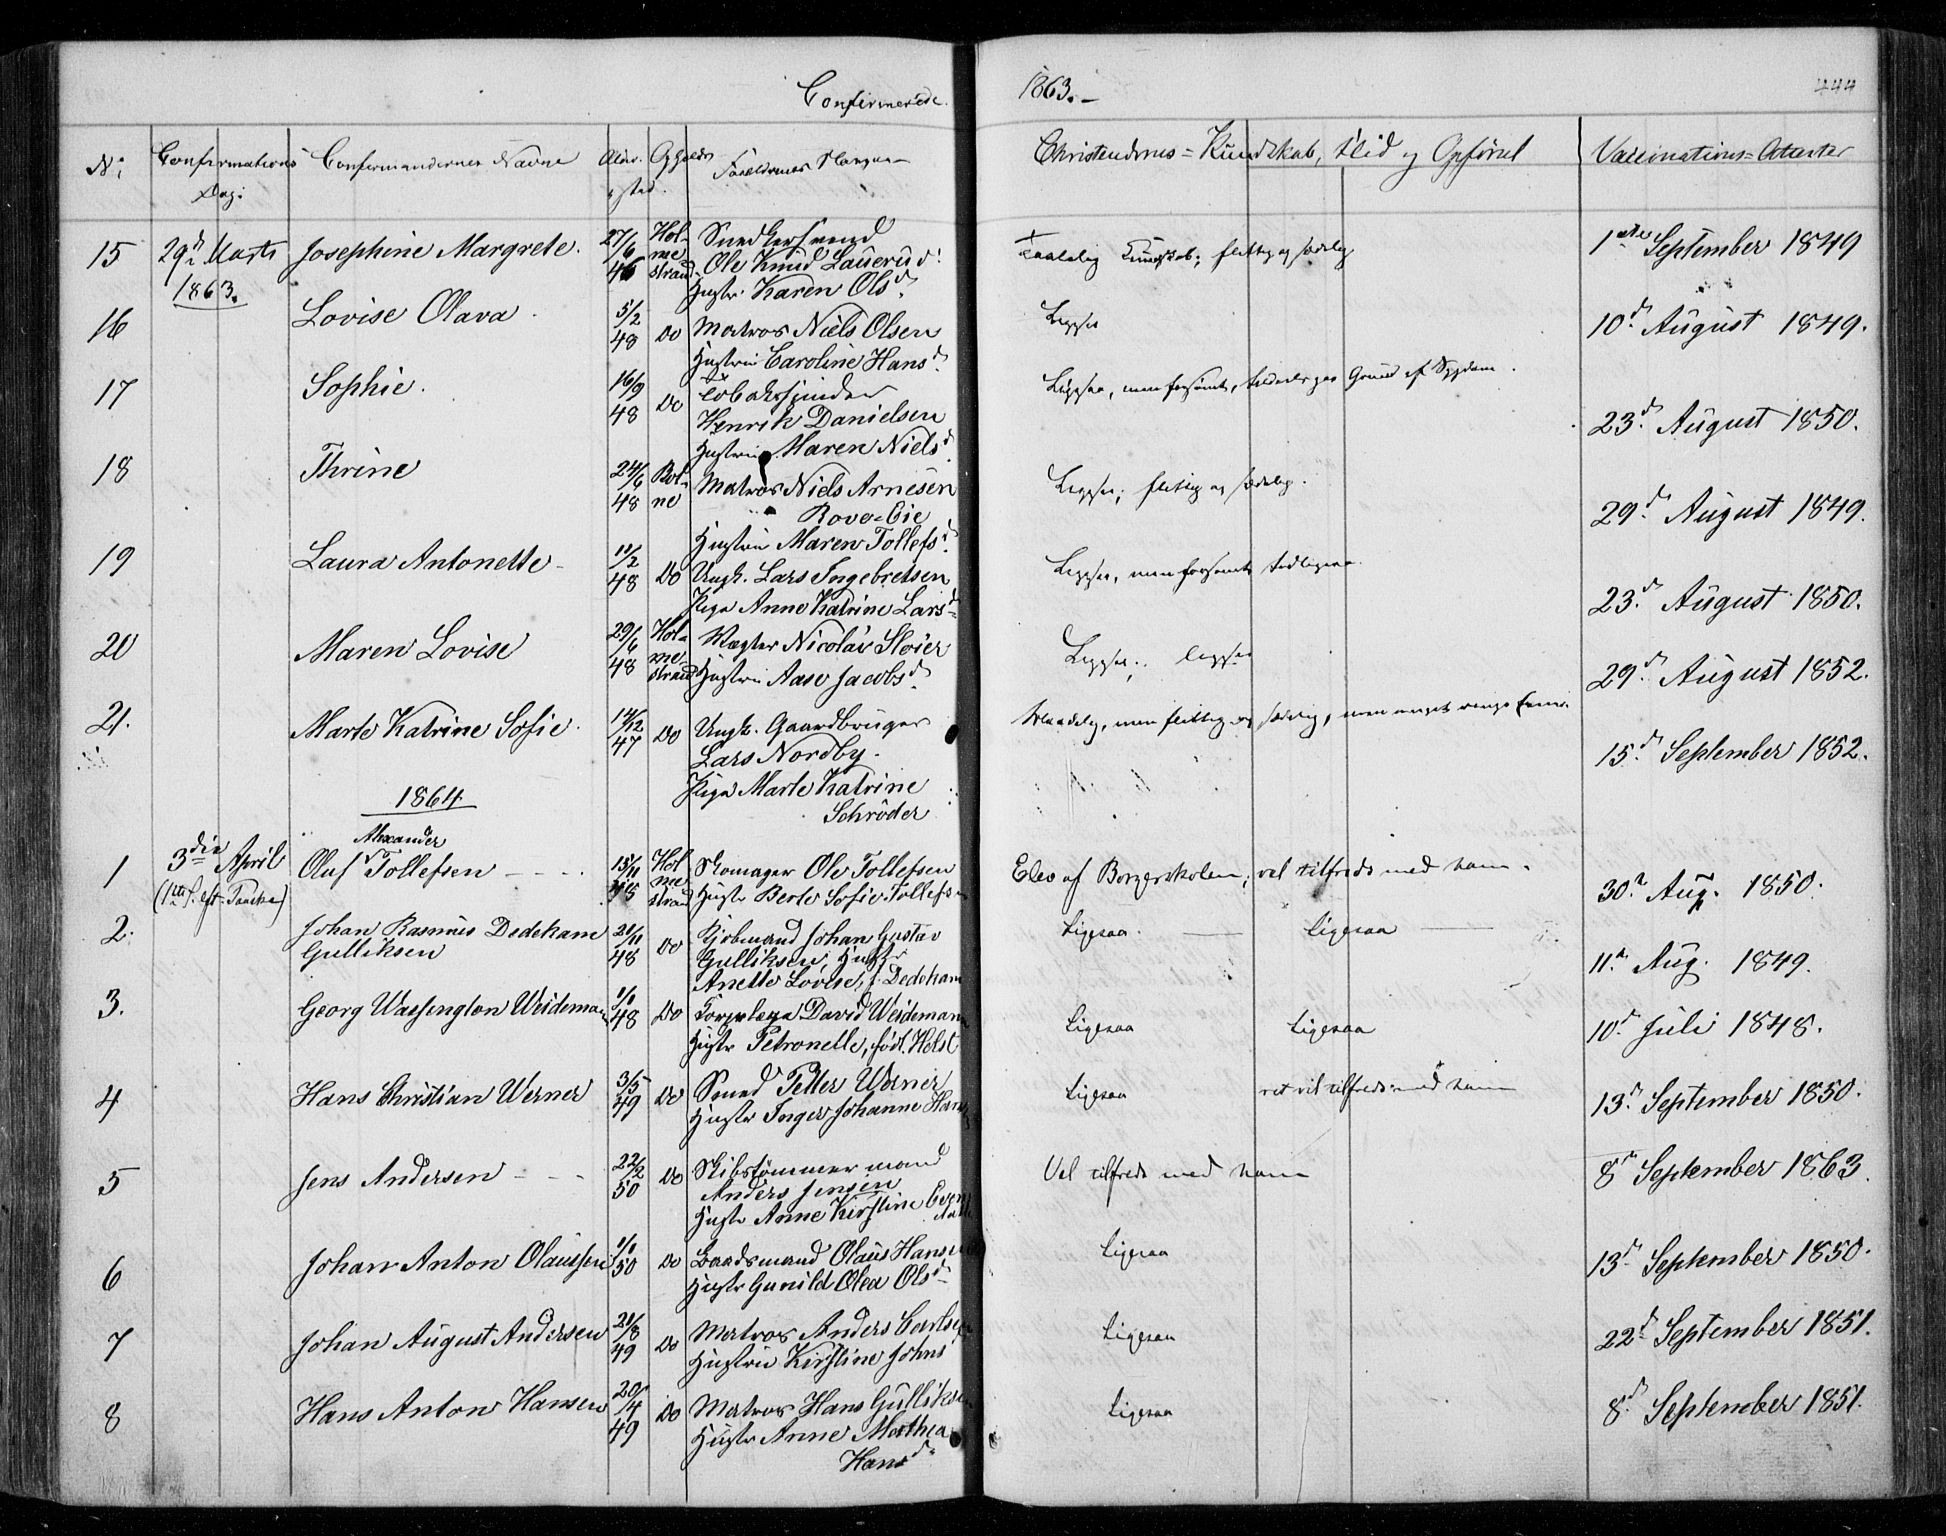 Confirmerede 1863.
444
No: Confirmations Dag: Confirmandernes Navne Alder Opholdssted. Forældrenes Navne
Christendoms=Kundskab, Flid og Opførsel Vaccinations=Attester
15 29d Marts 1863. Josephine Margrete. 27/6 46 Holmestrand
Snedkersvend
Ole Knud Lauerud
Hustr. Karen Olsd.
Taalelig Kundskab; flittig og sædelig
1ste September 1849
16 Lovise Olava. 5/2 48 Do
Matros Niels Olsen
Hustru Caroline Hansd.
Ligesaa
10d August 1849.
17 Sophie. 16/9 48 Do
Tobaksspinder
Henrik Danielsen
Hustru Maren Nielsd.
Ligesaa, men forsømt, paa Grund af Sygdom.
23d August 1850.
18 Thrine 24/6 48 Botne
Matros Niels Arnesen
Rove=Eie
Hustru Maren Tollefsd.
Ligesaa; flittig og sædelig.
29d August 1849.
19 Laura Antonette 11/2 48 Do
Ungk. Lars Ingebretsen
Pige Anne Katrine Larsd
Ligesaa, men forsømt
23d August 1850.
20 Maren Lovise 29/6 48 Holmestrand
Vægter Nicolai Sloier
Hustru Aase Jacobsd.
Ligesaa; ligesaa
29d August 1852.
21. Marte Katrine Sofie. 14/12 47 Do
Ungk. Gaardbruger
Lars Nordby.
Pige Marte Katrine
Schrøder
Maadelig, men flittig og sædelig, men meget ringe Evner.
15d September 1852.
1864
1 3die April (1ste S. eft. Paaske)
Alexander
Oluf Tollefsen 15/11 Holmestrand
Skomager Ole Tollefsen
Hustr Berte Sofie Tollefs
Elev af Borgerskolen; vel tilfreds med ham.
30d Aug. 1850.
2. Johan Rasmus Dedekam
Gulliksen 21/11 48 Do
Kjøbmand Johan Gustav
Gulliksen, Hustr
Anette Lovise, f. Dedekam
Ligesaa. Ligesaa
11d Aug. 1849.
3. Georg Wassington Weideman 1/1 48 Do
David Weidemann
Hustr Petronelle, født Holst
Ligesaa Ligesaa
10d Juli 1848.
4 Hans Christian Werner 3/5 49 Do
Smed Petter Werner
Hustr Inger Johanne Hans
Ligesaa ret vel tilfreds med ham
13d September 1850.
5 Jens Andersen 22/2 50 Do
Skibstømmermand
Anders Jensen
Hustr Anne Kirstine
Vel tilfreds med ham
8d September 1863.
6 Johan Anton Olaussen 1/1 50 Do
Baadsmand Olaus Hansen
Hustr Gunild Olea Olsd
Ligesaa
13d September 1850.
7 Johan August Andersen 21/8 49 Do
Matros Anders Carlsen
Hustru Kirstine Johns
Ligesaa
22d September 1851.
8 Hans Anton Hansen 20/4 49 Do
Matros Hans Gulliksen
Hustr Anne Marthea
Hansd.
Ligesaa
8d September 1851.